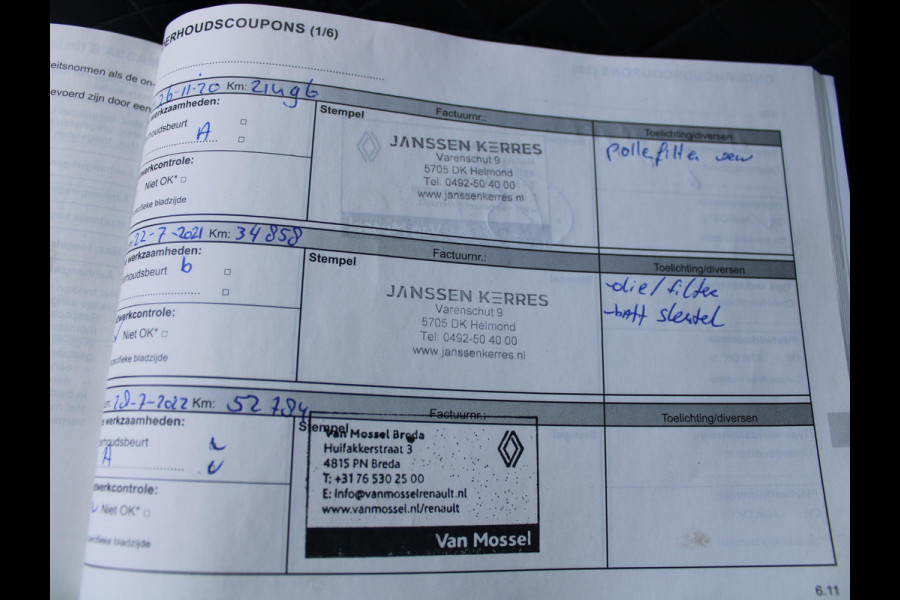 ERHOUDSCOUPONS (1/6)
eitsnormen als de on-
evoerd zijn door een
26-11-20 Km: 21496
werkzaamheden:
houdsbeurt A
werkcontrole:
Niet OK*
ecifieke bladzijde
Stempel
Factuurnr.:
JANSSEN KERRES
Varenschut 9
5705 DK Helmond
Tel: 0492-50 40 00
www.janssenkerres.nl
Toelichting/diversen
pollefilter
22-7-2021 Km: 34858
werkzaamheden:
rhoudsbeurt b
werkcontrole:
Niet OK*
ecifieke bladzijde
Stempel
Factuurnr.:
JANSSEN KERRES
Varenschut 9
5705 DK Helmond
Tel: 0492-50 40 00
www.janssenkerres.nl
Toelichting/diversen
olie/filter
batt sleutel
28-7-2022 Km: 52784
werkzaamheden:
rhoudsbeurt
A
werkcontrole:
Niet OK*
ecifieke bladzijde
Factuurnr.:
Stempel
Van Mossel Breda
Huifakkerstraat 3
4815 PN Breda
T: +31 76 530 25 00
E: info@vanmosselrenault.nl
www.vanmossel.nl/renault
Van Mossel
Toelichting/diversen
6.11